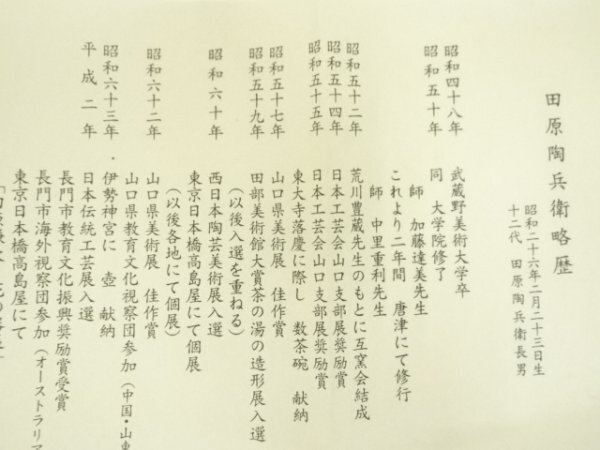 田原陶兵衛略歴
昭和二十六年二月二十三日生
十二代 田原陶兵衛長男
昭和四十八年 武蔵野美術大学卒
昭和五十年 同 大学院修了
師 加藤達美先生
これより二年間 唐津にて修行
師 中里重利先生
昭和五十二年 荒川豊蔵先生のもとに互窯会結成
昭和五十四年 日本工芸会山口支部展奨励賞
昭和五十五年 日本工芸会山口支部展奨励賞
東大寺落慶に際し 数茶碗 献納
昭和五十七年 山口県美術展 佳作賞
昭和五十九年 田部美術館大賞茶の湯の造形展入選
(以後入選を重ねる)
昭和六十年 西日本陶芸美術展入選
東京日本橋高島屋にて個展
(以後各地にて個展)
昭和六十二年 山口県美術展 佳作賞
山口県教育文化視察団参加(中国・山東
昭和六十三年・伊勢神宮に 壺 献納
平成二年 日本伝統工芸展入選
長門市教育文化振興奨励賞受賞
長門市海外視察団参加(オーストラリア
東京日本橋高島屋にて